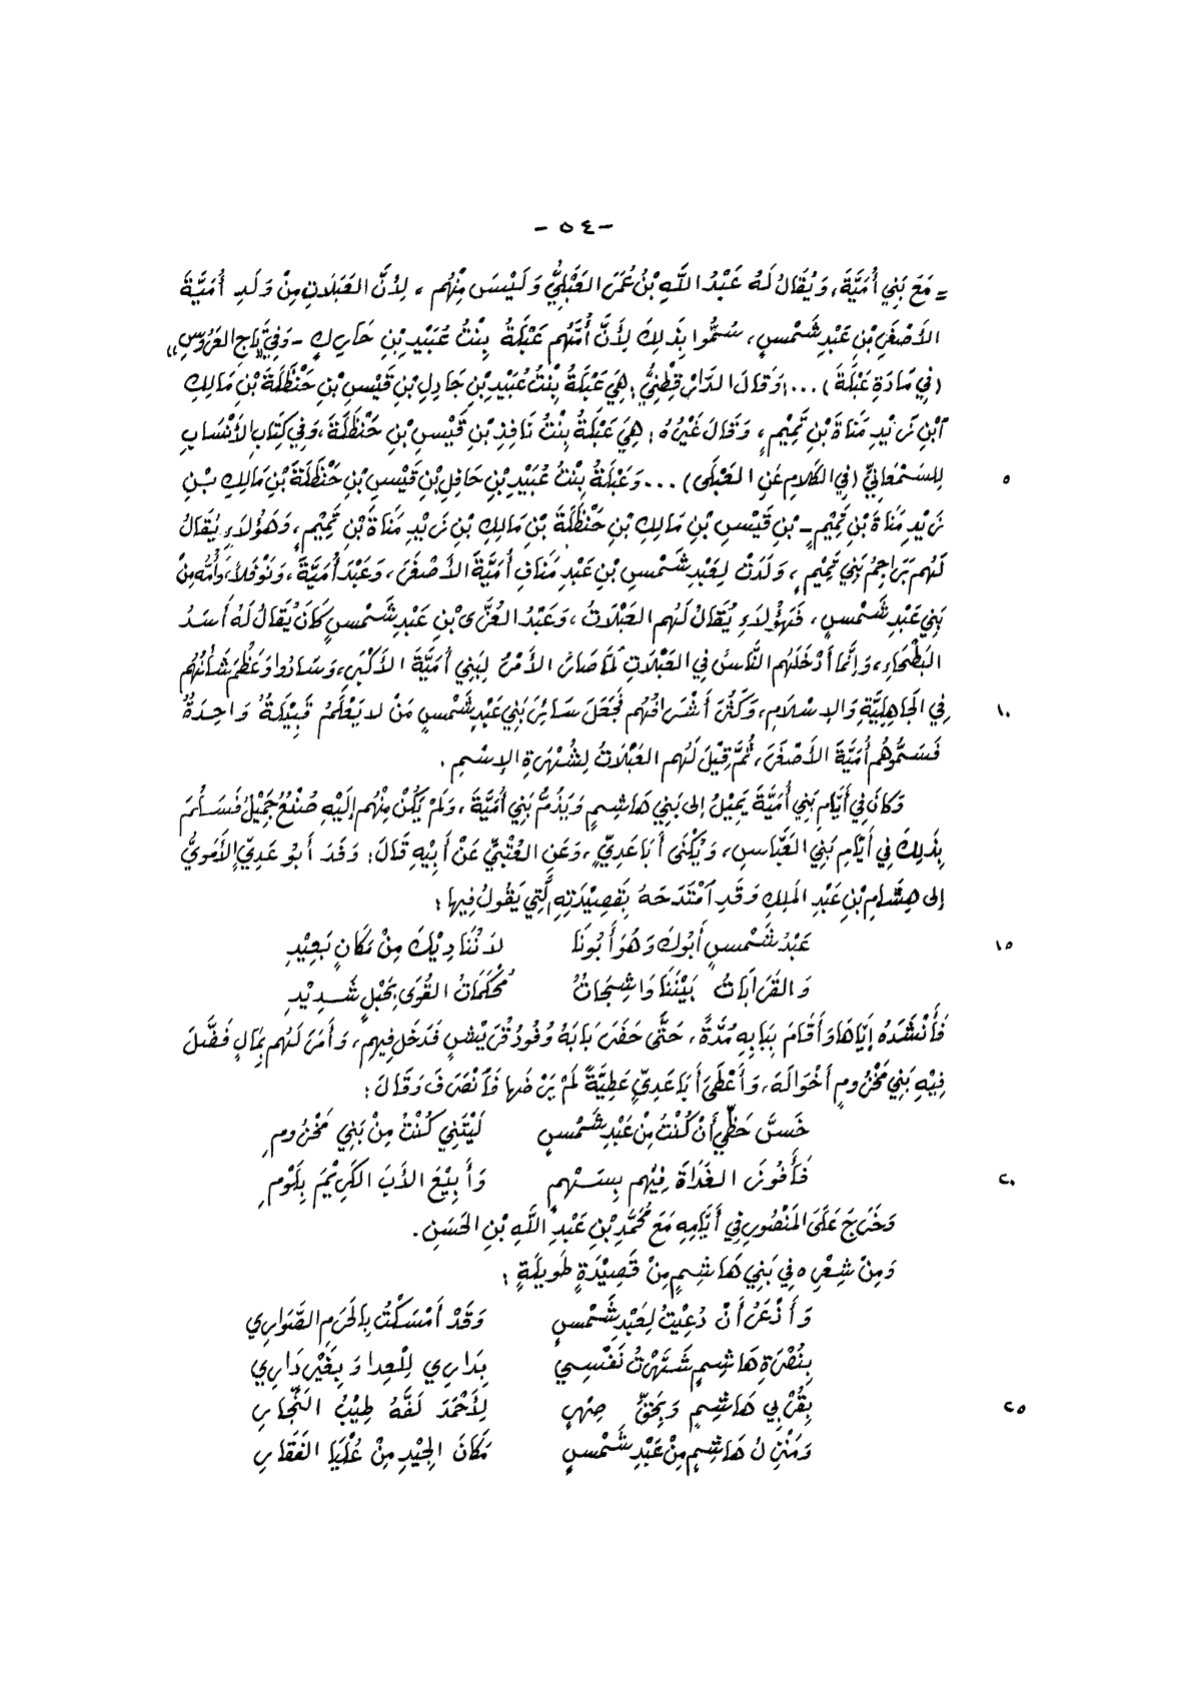 - ٥٤ -
= مَعَ بَنِي أُمَيَّةَ، وَيُقَالُ لَهُ عَبْدُ اللَّهِ بْنُ عُمَرَ العَبْلِيُّ وَلَيْسَ مِنْهُم، لِأَنَّ العَبَلَاتِ مِنْ وَلَدِ أُمَيَّةَ
الأَصْغَرِ بْنِ عَبْدِ شَمْسٍ، سُمُّوا بِذَلِكَ لِأَنَّ أُمَّهُم عَبْلَةُ بِنْتُ عُبَيْدِ بْنِ حَارِكٍ - وَفِي تَاجِ العَرُوسِ"
(فِي مَادَةِ عَبْلَةَ) ... وَقَالَ الدَّارَقُطْنِيُّ: هِيَ عَبْلَةُ بِنْتُ عُبَيْدِ بْنِ جَادِلِ بْنِ قَيْسِ بْنِ حَنْظَلَةَ بْنِ مَالِكِ
آبْنِ زَيْدِ مَنَاةَ بْنِ تَمِيْمٍ، وَقَالَ غَيْرُهُ: هِيَ عَبْلَةُ بِنْتُ نَافِذِ بْنِ قَيْسِ بْنِ حَنْظَلَةَ، وَفِي كِتَابِ الأَنْسَابِ
لِلسَّمْعَانِيِّ (فِي الكَلَامِ عَنِ العَبْلِي) ... وَعَبْلَةُ بِنْتُ عُبَيْدِ بْنِ حَافِلِ بْنِ قَيْسِ بْنِ حَنْظَلَةَ بْنِ مَالِكِ بْنِ ٥
زَيْدِ مَنَاةَ بْنِ تَمِيْمٍ - بْنِ قَيْسِ بْنِ مَالِكِ بْنِ حَنْظَلَةَ بْنِ مَالِكِ بْنِ زَيْدِ مَنَاةَ بْنِ تَمِيْمٍ، وَهَؤُلَاءِ يُقَالُ
لَهُم بَرَاجِمُ بَنِي تَمِيْمٍ، وَلَدَتْ لِعَبْدِ شَمْسِ بْنِ عَبْدِ مَنَافِ أُمَيَّةَ الأَصْغَرَ، وَعَبْدَ أُمَيَّةَ، وَنَوْفَلاً، وَأُمُّه مِنْ
بَنِي عَبْدِ شَمْسٍ، فَهَؤُلَاءِ يُقَالُ لَهُم العَبْلَاتُ، وَعَبْدُ العُزَّى بْنِ عَبْدِ شَمْسٍ كَانَ يُقَالُ لَهُ أَسَدُ
البَطْحَاءِ، وَإِنَّمَا أَدْخَلَهُم النَّاسُ فِي العَبْلَاتِ لَمَّا صَارَ الأَمْرُ لِبَنِي أُمَيَّةَ الأَكْبَرِ، وَسَادُوا وَعَظُمَ شَأْنُهُم
فِي الجَاهِلِيَّةِ وَالإِسْلَامِ، وَكَثُرَ أَشْرَافُهُم فَجَعَلَ سَائِرَ بَنِي عَبْدِ شَمْسٍ مَنْ لَا يَعْلَمُ قَبِيْلَةً وَاحِدَةً ١٠
فَسَمُّوهُم أُمَيَّةَ الأَصْغَرَ، ثُمَّ قِيْلَ لَهُم العَبْلَاتُ لِشُهْرَةِ الإِسْمِ.
وَكَانَ فِي أَيَّامِ بَنِي أُمَيَّةَ يَمِيْلُ إِلَى بَنِي هَاشِمٍ وَيَذُمُّ بَنِي أُمَيَّةَ، وَلَمْ يَكُنْ مِنْهُم إِلَيْهِ صُنْعٌ جَمِيْلٌ فَسَلِمَ
بِذَلِكَ فِي أَيَّامِ بَنِي العَبَّاسِ، وَيُكْنَى أَبَا عَدِيٍّ، وَعَنِ العُتْبِيِّ عَنْ أَبِيْهِ قَالَ: وَفَدَ أَبُو عَدِيٍّ الأُمَوِيُّ
إِلَى هِشَامِ بْنِ عَبْدِ المَلِكِ وَقَدِ آمْتَدَحَهُ بِقَصِيْدَتِهِ الَّتِي يَقُولُ فِيهَا:
عَبْدُ شَمْسٍ أَبُوكَ وَهُوَ أَبُونَا لَا نُنَادِيْكَ مِنْ مَكَانٍ بَعِيْدِ ١٥
وَالقَرَابَاتُ بَيْنَنَا وَاشِجَاتٌ مُحْكَمَاتُ القُوَى بِحَبْلٍ شَدِيْدِ
فَأَنْشَدَهُ إِيَّاهَا وَأَقَامَ بِبَابِهِ مُدَّةً، حَتَّى حَضَرَ بَابَهُ وُفُودُ قُرَيْشٍ فَدَخَلَ فِيهِم، وَأَمَرَ لَهُم بِمَالٍ فَفَضَّلَ
فِيْهِ بَنِي مَخْزُومٍ أَخْوَالَهُ، وَأَعْطَى أَبَا عَدِيٍّ عَطِيَّةً لَمْ يَرْضَهَا فَآنْصَرَفَ وَقَالَ:
خَسَّ حَظِّي أَنْ كُنْتُ مِنْ عَبْدِ شَمْسٍ لَيْتَنِي كُنْتُ مِنْ بَنِي مَخْزُومِ
فَأَفُوزَ الغَدَاةَ فِيْهِم بِسَهْمٍ وَأَبِيْعَ الأَبَ الكَرِيْمَ بِلَوْمِ ٢٠
وَخَرَجَ عَلَى المَنْصُورِ فِي أَيَّامِهِ مَعَ مُحَمَّدِ بْنِ عَبْدِ اللَّهِ بْنِ الحَسَنِ.
وَمِنْ شِعْرِهِ فِي بَنِي هَاشِمٍ مِنْ قَصِيْدَةٍ طَوِيلَةٍ:
وَأَذْعَرُ أَنْ دُعِيْتُ لِعَبْدِ شَمْسٍ وَقَدْ أَمْسَكْتُ بِالحَرَمِ الصَّوَارِي
بِنُصْرَةِ هَاشِمٍ شَهَرْتُ نَفْسِي بِدَارِي لِلْعِدَا وَبِغَيْرِ دَارِي
بِقُرْبَى هَاشِمٍ وَبِحَقِّ صِهْرٍ لِأَحْمَدَ لَفَّهُ طِيْبُ النِّجَارِ ٢٥
وَمَنْزِلُ هَاشِمٍ مِنْ عَبْدِ شَمْسٍ مَكَانَ الجِيْدِ مِنْ عُلْيَا الفَقَارِ